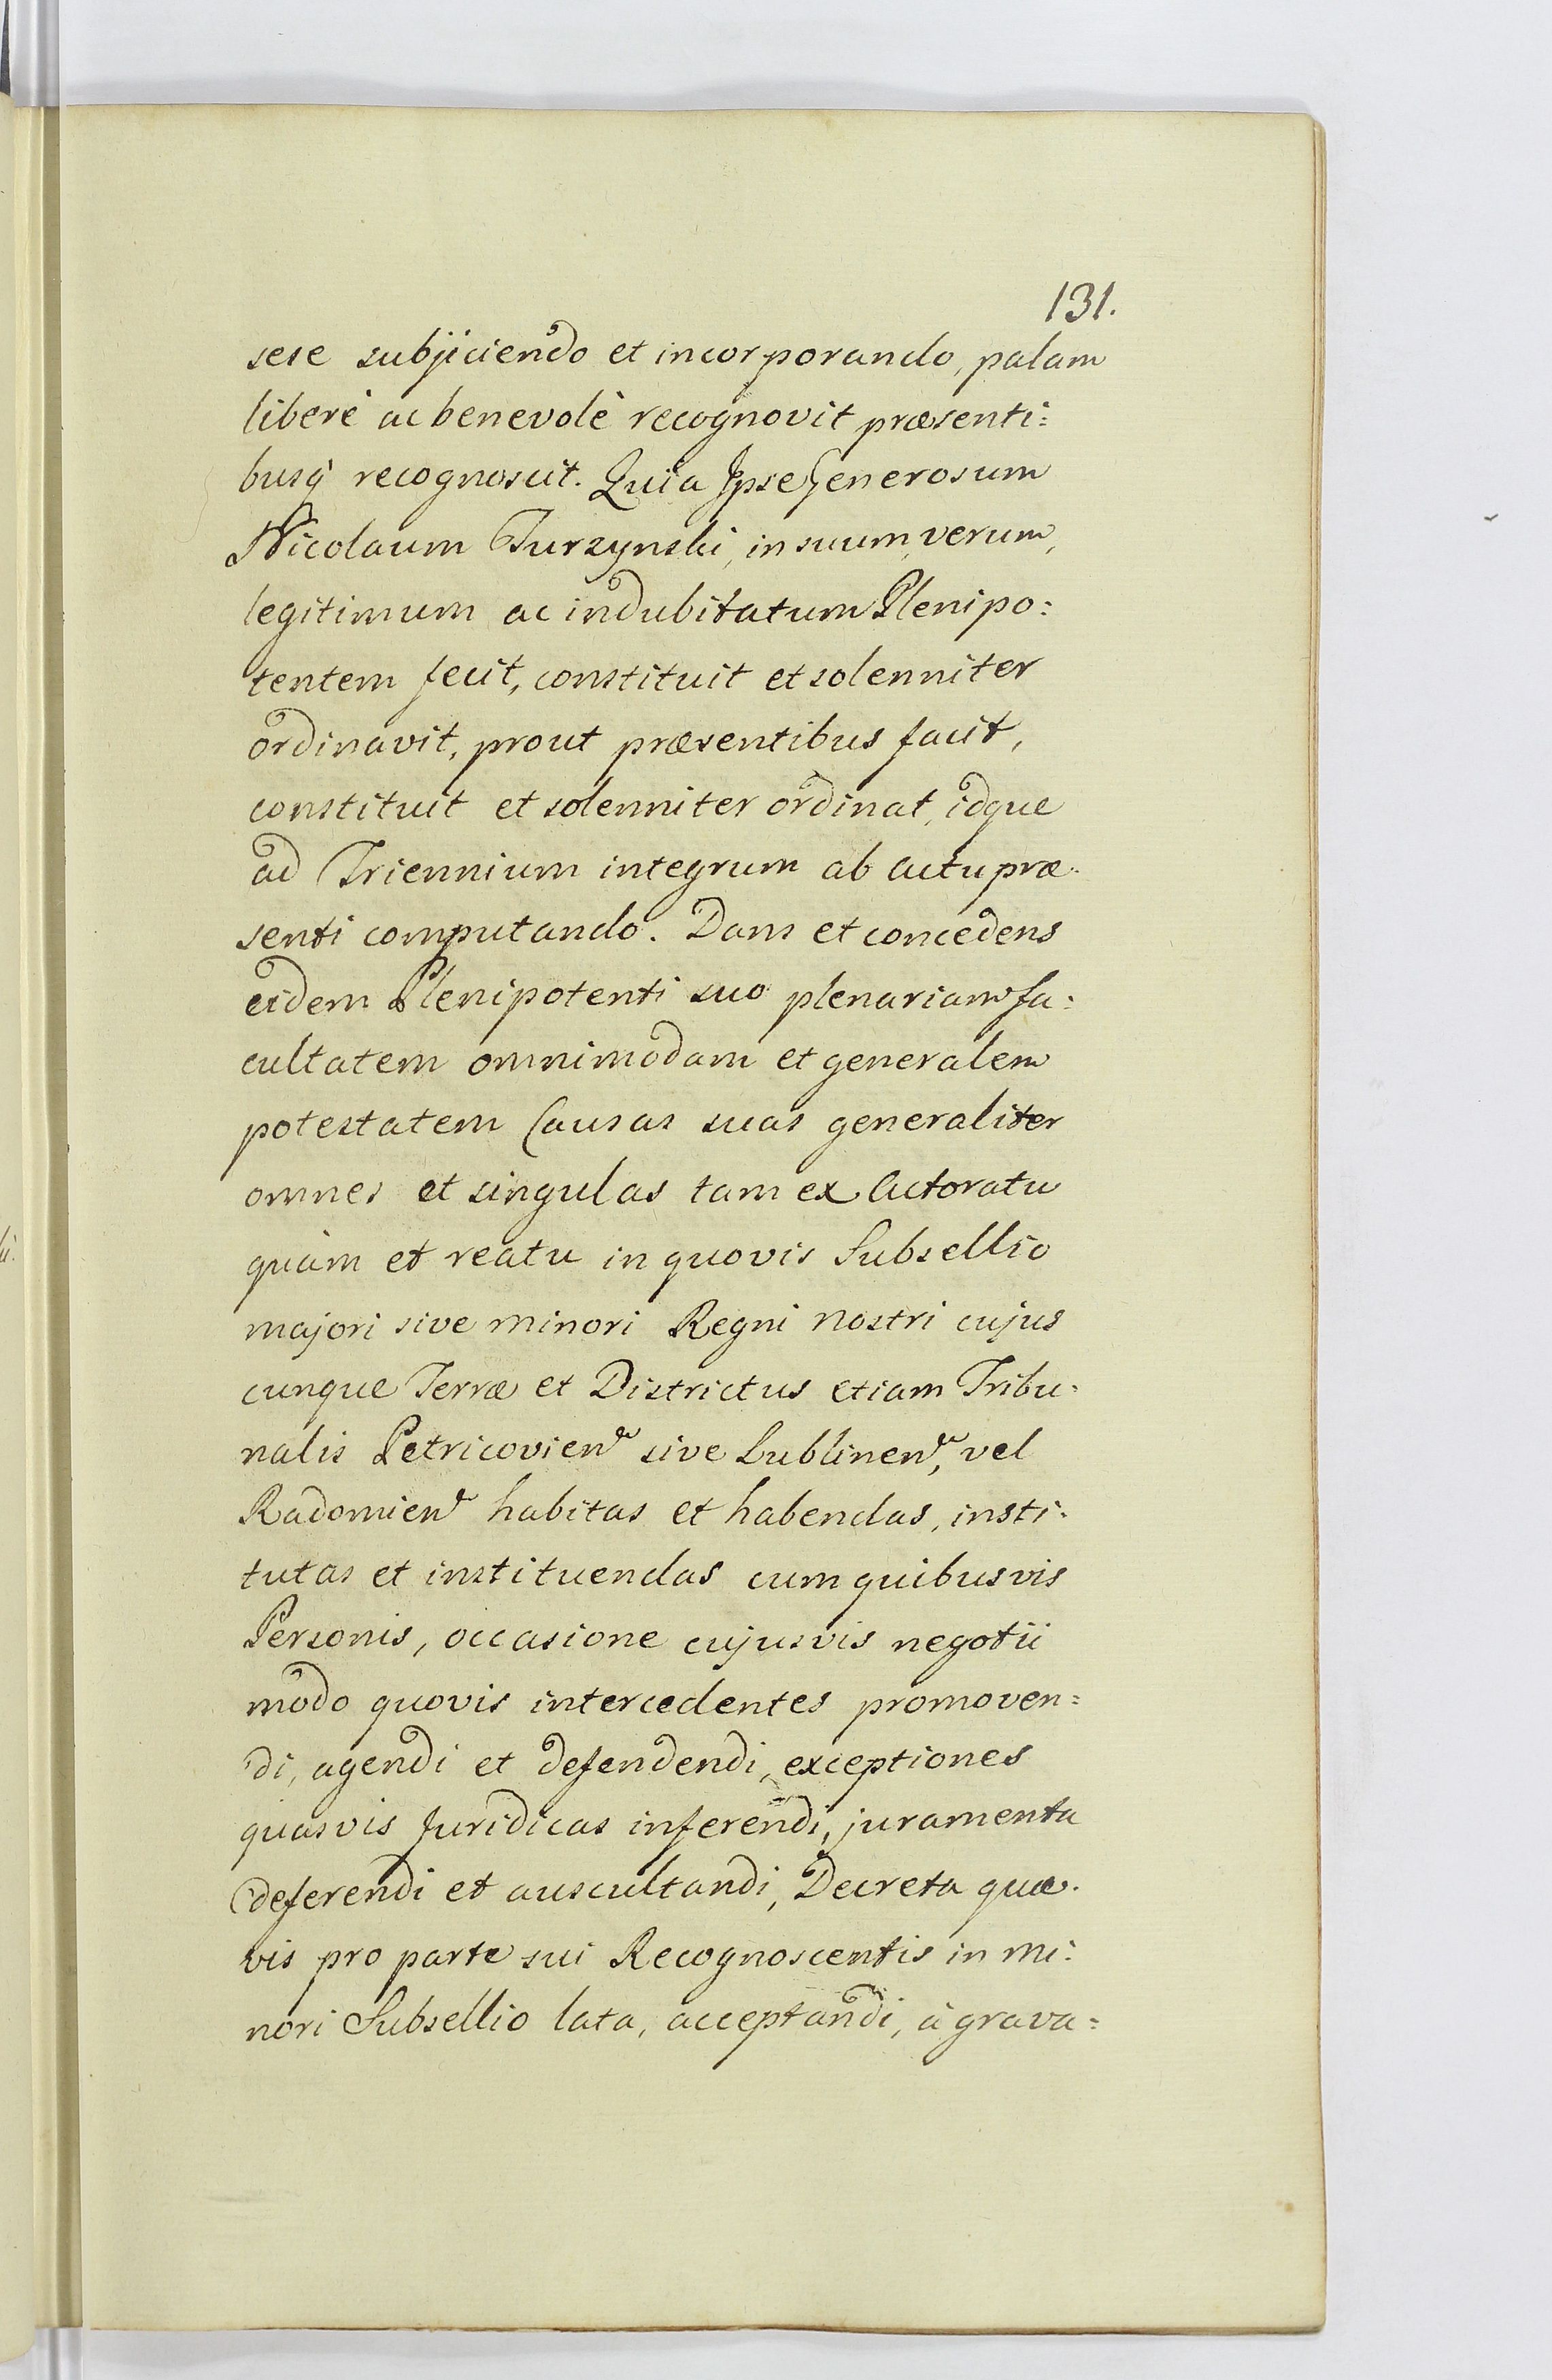 131.
sese subjiciendo et incorporando, palam
liberè ac benevolè recognovit præsenti=
busq recognoscit. Quia Ipse Generosum
Nicolaum Turzynski, in suum, verum,
legitimum ac indubitatum Plenipo=
tentem fecit, constituit et solenniter
ordinavit, prout præsentibus facit,
constituit et solenniter ordinat, idque
ad Triennium integrum ab Actu præ=
senti computando. Dans et concedens
eidem Plenipotenti suo plenariam fa=
cultatem omnimodam et generalem
potestatem Causas suas generaliter
omnes et singulas tam ex Actoratu
quàm et reatu in quovis Subsellio
majori sive minori Regni nostri cujus
cunque Terræ et Districtus etiam Tribu=
nalis Petricovien sive Lublinen, vel
Radomien habitas et habendas, insti=
tutas et instituendas cum quibusvis
Personis, occasione cujusvis negotii
modo quovis intercedentes promoven=
di, agendi et defendendi, exceptiones
quasvis Juridicas inferendi, juramenta
deferendi et auscultandi, Decreta quæ=
vis pro parte sui Recognoscentis in mi=
nori Subsellio lata, acceptandi, à grava=